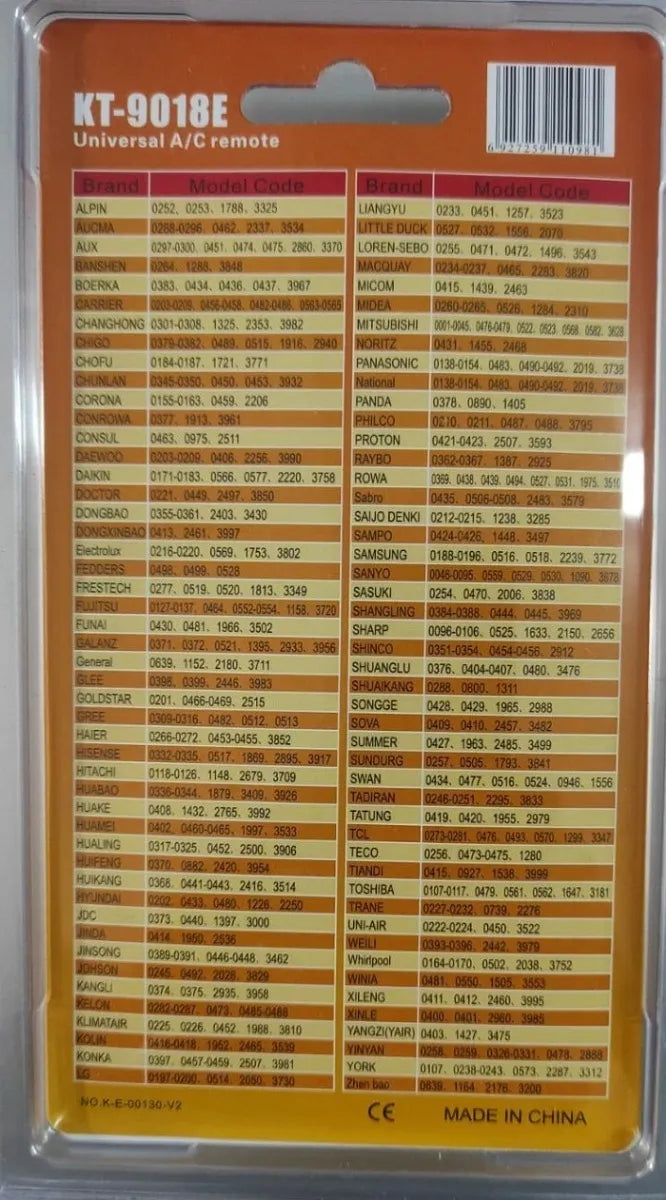 KT-9018E
Universal A/C remote
6 927259 110981
Brand Model Code
ALPIN 0252、0253、1788、3325
AUCMA 0288-0296、0462、2337、3534
AUX 0297-0300、0451、0474、0475、2860、3370
BANSHEN 0264、1288、3848
BOERKA 0383、0434、0436、0437、3967
CARRIER 0203-0209、0456-0458、0482-0486、0563-0565
CHANGHONG 0301-0308、1325、2353、3982
CHIGO 0379-0382、0489、0515、1916、2940
CHOFU 0184-0187、1721、3771
CHUNLAN 0345-0350、0450、0453、3932
CORONA 0155-0163、0459、2206
CONROWA 0377、1913、3961
CONSUL 0463、0975、2511
DAEWOO 0203-0209、0406、2256、3990
DAIKIN 0171-0183、0566、0577、2220、3758
DOCTOR 0221、0449、2497、3850
DONGBAO 0355-0361、2403、3430
DONGXINBAO 0413、2461、3997
Electrolux 0216-0220、0569、1753、3802
FEDDERS 0498、0499、0528
FRESTECH 0277、0519、0520、1813、3349
FUJITSU 0127-0137、0464、0552-0554、1158、3720
FUNAI 0430、0481、1966、3502
GALANZ 0371、0372、0521、1395、2933、3956
General 0639、1152、2180、3711
GLEE 0398、0399、2446、3983
GOLDSTAR 0201、0466-0469、2515
GREE 0309-0316、0482、0512、0513
HAIER 0266-0272、0453-0455、3852
HISENSE 0332-0335、0517、1869、2895、3917
HITACHI 0118-0126、1148、2679、3709
HUABAO 0336-0344、1879、3409、3926
HUAKE 0408、1432、2765、3992
HUAMEI 0402、0460-0465、1997、3533
HUALING 0317-0325、0452、2500、3906
HUIFENG 0370、0882、2420、3954
HUIKANG 0368、0441-0443、2416、3514
HYUNDAI 0202、0433、0480、1226、2250
JDC 0373、0440、1397、3000
JINDA 0414、1950、2536
JINSONG 0389-0391、0446-0448、3462
JOHSON 0245、0492、2028、3829
KANGLI 0374、0375、2935、3958
KELON 0282-0287、0473、0485-0488
KLIMATAIR 0225、0226、0452、1988、3810
KOLIN 0416-0418、1952、2465、3539
KONKA 0397、0457-0459、2507、3981
LG 0197-0200、0514、2050、3730
Brand Model Code
LIANGYU 0233、0451、1257、3523
LITTLE DUCK 0527、0532、1556、2070
LOREN-SEBO 0255、0471、0472、1496、3543
MACQUAY 0234-0237、0465、2283、3820
MICOM 0415、1439、2463
MIDEA 0260-0265、0526、1284、2310
MITSUBISHI 0001-0045、0476-0479、0522、0523、0568、0582、3628
NORITZ 0431、1455、2468
PANASONIC 0138-0154、0483、0490-0492、2019、3738
National 0138-0154、0483、0490-0492、2019、3738
PANDA 0378、0890、1405
PHILCO 0210、0211、0487、0488、3795
PROTON 0421-0423、2507、3593
RAYBO 0362-0367、1387、2925
ROWA 0369、0438、0439、0494、0527、0531、1975、3510
Sabro 0435、0506-0508、2483、3579
SAIJO DENKI 0212-0215、1238、3285
SAMPO 0424-0426、1448、3497
SAMSUNG 0188-0196、0516、0518、2239、3772
SANYO 0046-0095、0559、0529、0530、1090、3678
SASUKI 0254、0470、2006、3838
SHANGLING 0384-0388、0444、0445、3969
SHARP 0096-0106、0525、1633、2150、2656
SHINCO 0351-0354、0454-0456、2912
SHUANGLU 0376、0404-0407、0480、3476
SHUAIKANG 0288、0800、1311
SONGGE 0428、0429、1965、2988
SOVA 0409、0410、2457、3482
SUMMER 0427、1963、2485、3499
SUNDURG 0257、0505、1793、3841
SWAN 0434、0477、0516、0524、0946、1556
TADIRAN 0246-0251、2295、3833
TATUNG 0419、0420、1955、2979
TCL 0273-0281、0476、0493、0570、1299、3347
TECO 0256、0473-0475、1280
TIANDI 0415、0927、1538、3999
TOSHIBA 0107-0117、0479、0561、0562、1647、3181
TRANE 0227-0232、0739、2276
UNI-AIR 0222-0224、0450、3522
WEILI 0393-0396、2442、3979
Whirlpool 0164-0170、0502、2038、3752
WINIA 0481、0550、1505、3553
XILENG 0411、0412、2460、3995
XINLE 0400、0401、2960、3985
YANGZI(YAIR) 0403、1427、3475
YINYAN 0258、0259、0326-0331、0478、2888
YORK 0107、0238-0243、0573、2287、3312
Zhen bao 0639、1164、2176、3200
NO.K-E-00130-V2
CE MADE IN CHINA